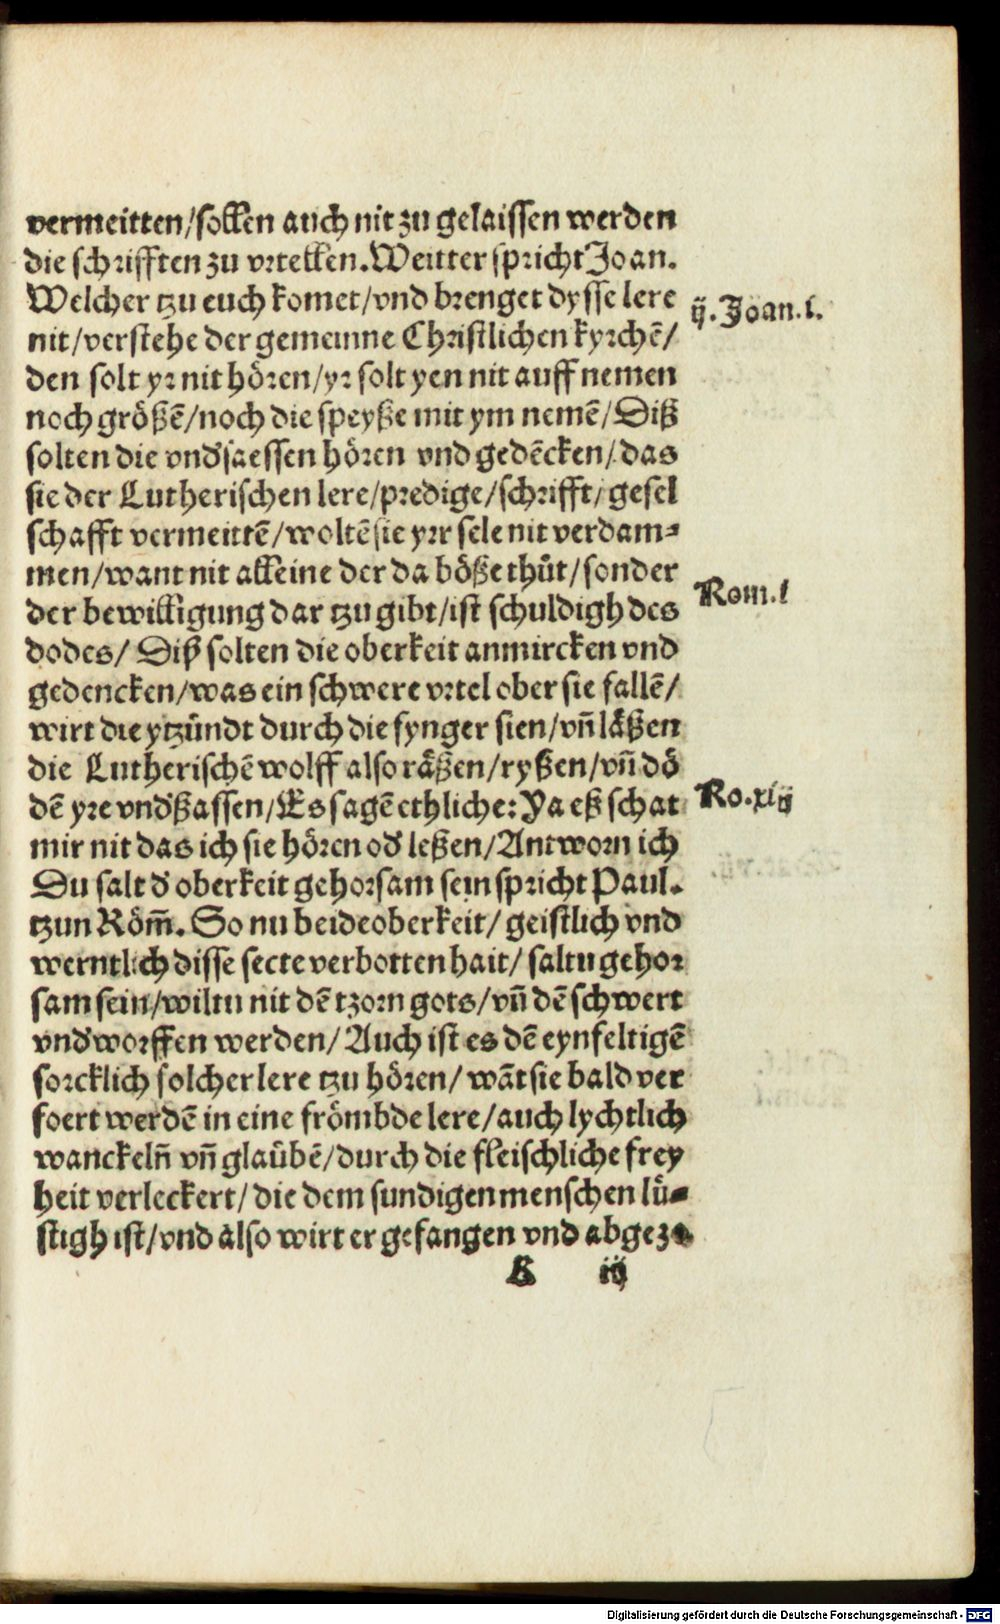 vermeitten/sollen auch nit zu gelaissen werden
die schrifften zu vrtellen. Weitter spricht Joan.
Welcher tzu euch komet/vnd brenget dysse lere
ij. Joan. i.
nit/verstehe der gemeinne Christlichen kyrchē/
den solt yr nit hören/yr solt yen nit auff nemen
noch größē/noch die speyße mit ym nemē/Diß
solten die vnd'saessen hören vnd gedēcken/das
sie der Lutherischen lere/predige/schrifft/gesel
schafft vermeittē/woltē sie yrr sele nit verdam⸗
men/want nit alleine der da böße thůt/sonder
Rom. i
der bewilligung dar tzu gibt/ist schuldigh des
dodes/ Diß solten die oberkeit anmircken vnd
gedencken/was ein schwere vrtel ober sie fallē/
wirt die ytzündt durch die fynger sien/vn̄ läßen
die Lutherischē wolff also räßen/ryßen/vn̄ dö
dē yre vnd'ßassen/Es sagē ethliche: Ya eß schat
Ro. xiij
mir nit das ich sie hören od' leßen/Antworn ich
Du salt d' oberkeit gehorsam sein spricht Paul.
tzun Röm̄. So nu beide oberkeit/ geistlich vnd
werntlich disse secte verbotten hait/ saltu gehor
sam sein/wiltu nit dē tzorn gots/vn̄ dē schwert
vnd'worffen werden/ Auch ist es dē eynfeltigē
sorcklich solcher lere tzu hören/ wāt sie bald ver
foert werdē in eine frömbde lere/auch lychtlich
wanckeln̄ vn̄ glaübē/durch die fleischliche frey
heit verleckert/ die dem sundigen menschen lü⸗
stigh ist/vnd also wirt er gefangen vnd abgezo
B iij
Digitalisierung gefördert durch die Deutsche Forschungsgemeinschaft - DFG